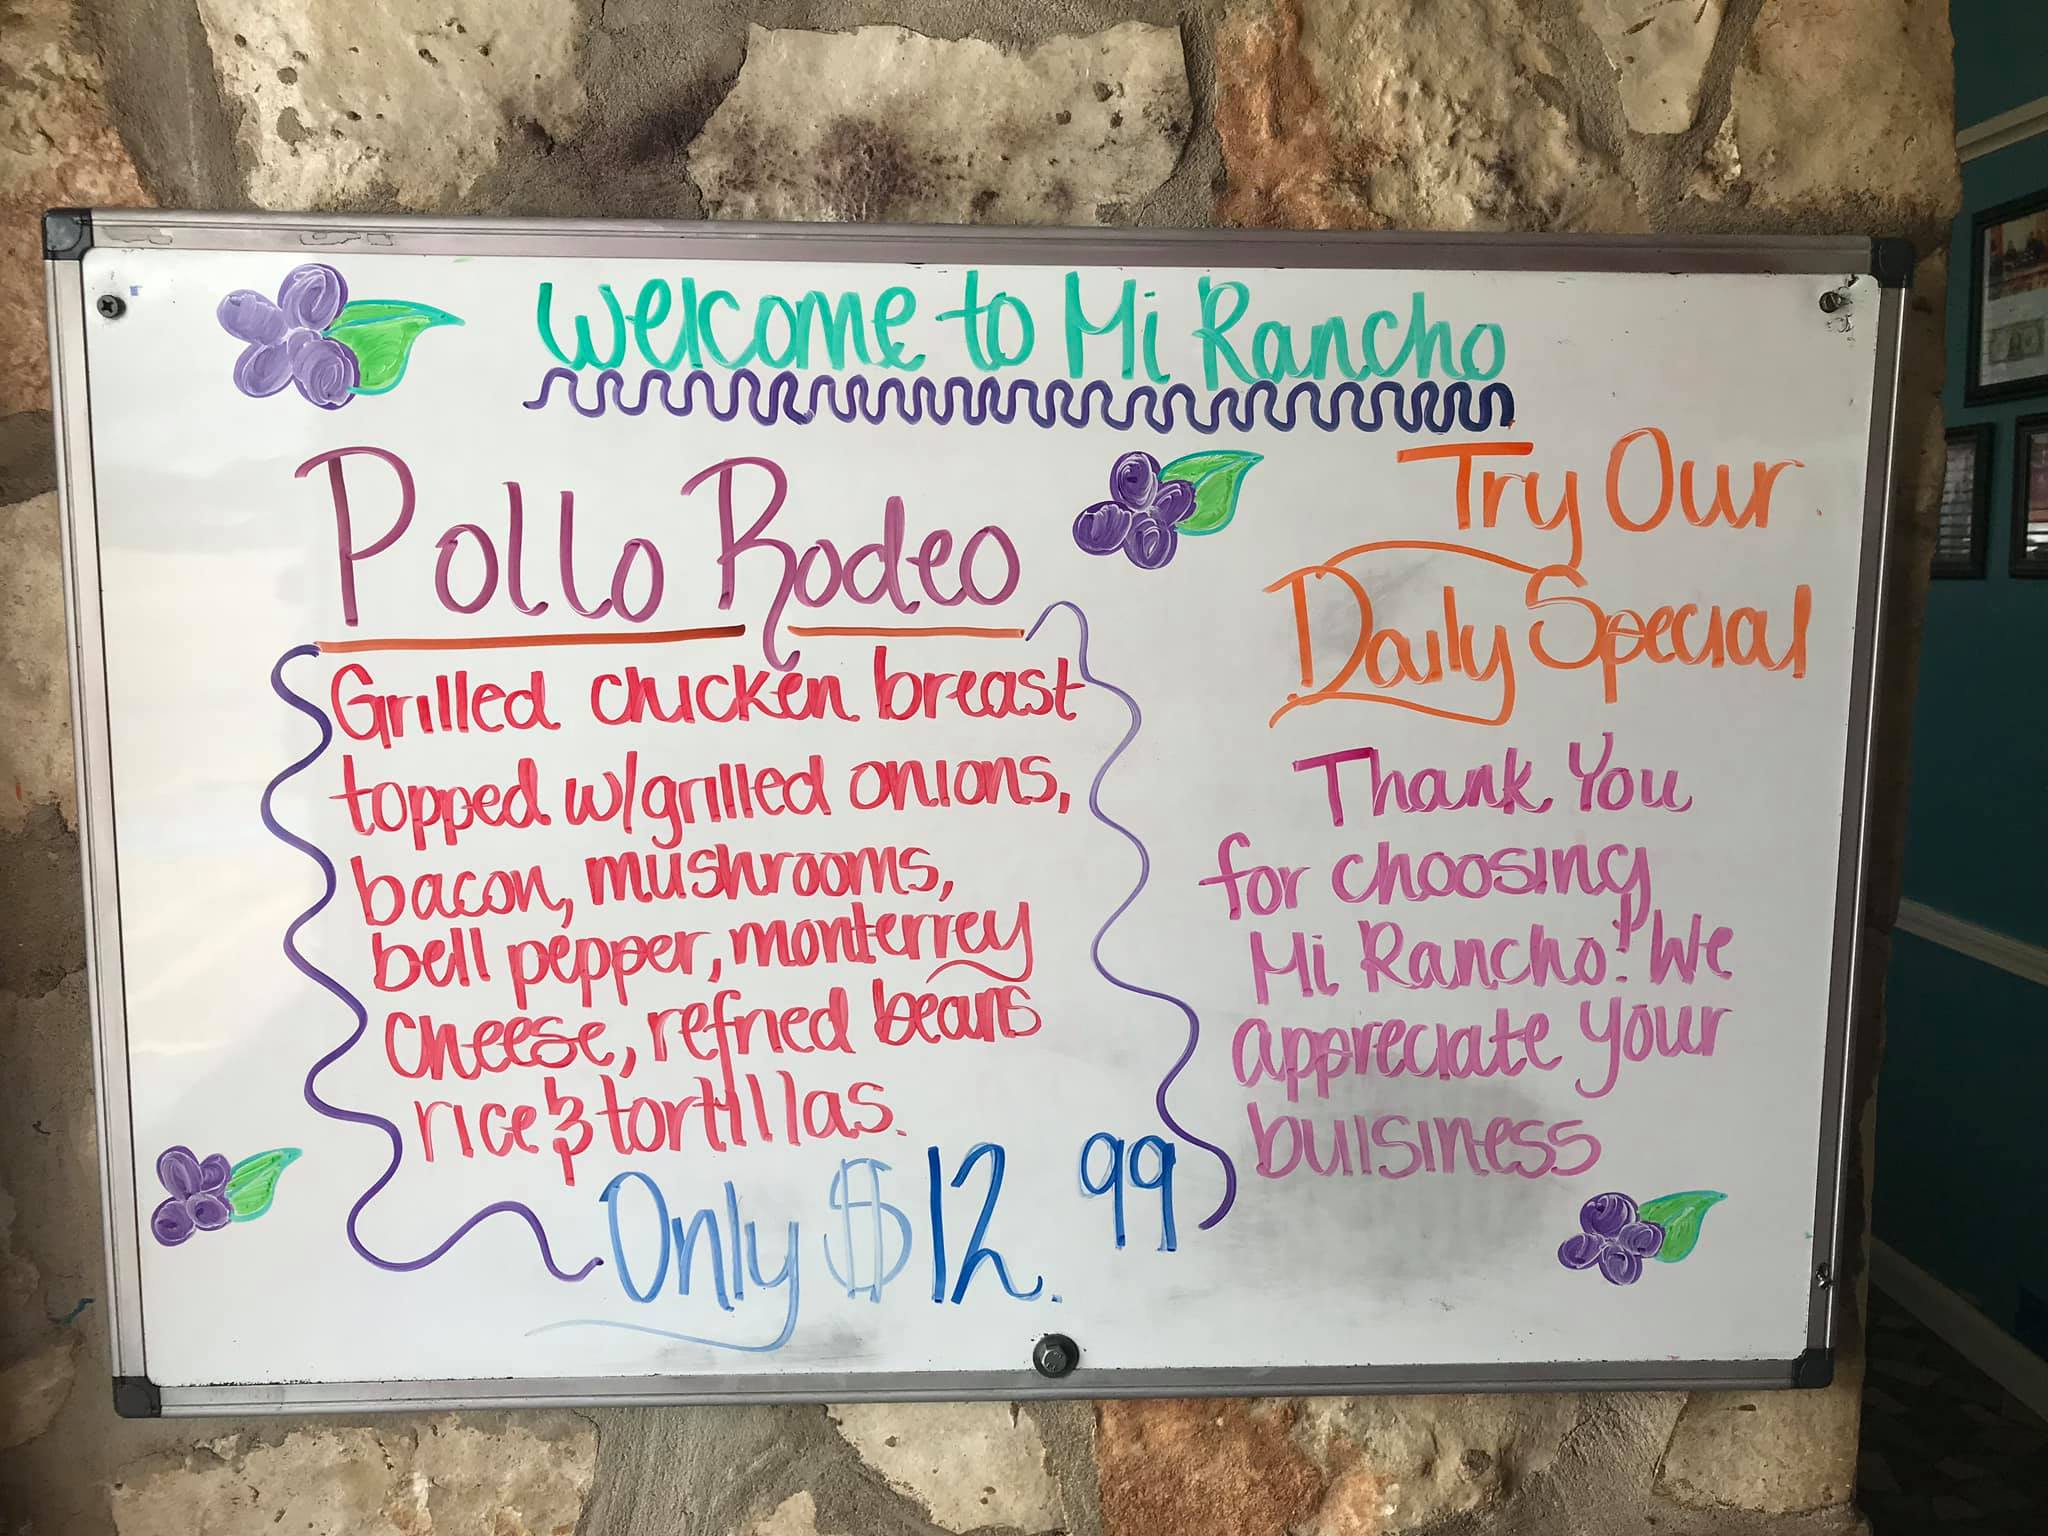 Welcome to Mi Rancho
Pollo Rodeo
Grilled chicken breast
topped w/grilled onions,
bacon, mushrooms,
bell pepper, monterrey
cheese, refried beans
rice & tortillas.
Only $12.99
Try Our
Daily Special
Thank You
for choosing
Mi Rancho! We
appreciate your
buisiness